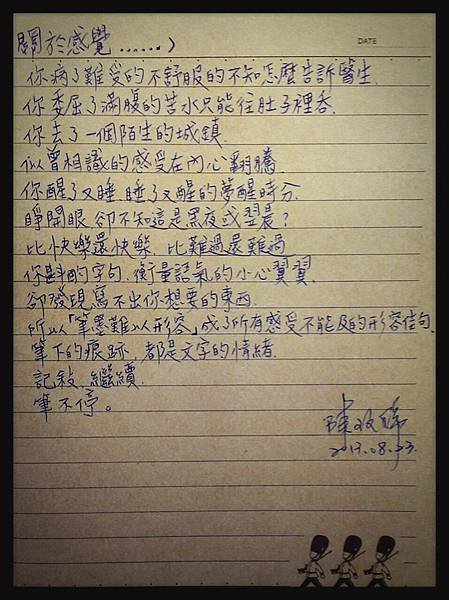 關於感覺......〉
DATE
你病了難受的不舒服的不知怎麼告訴醫生.
你委屈了滿腹的苦水只能往肚子裡吞.
你去了一個陌生的城鎮.
似曾相識的感受在內心翻騰.
你醒了又睡.睡了又醒的夢醒時分.
睜開眼.卻不知這是黑夜或翌晨?
比快樂還快樂.比難過還難過
你斟酌字句.衡量語氣的小心翼翼.
卻發現寫不出你想要的東西.
所以「筆墨難以形容」成了所有感受不能及的形容佳句.
筆下的痕跡,都是文字的情緒.
記敍.繼續.
筆不停。
2013.08.23.